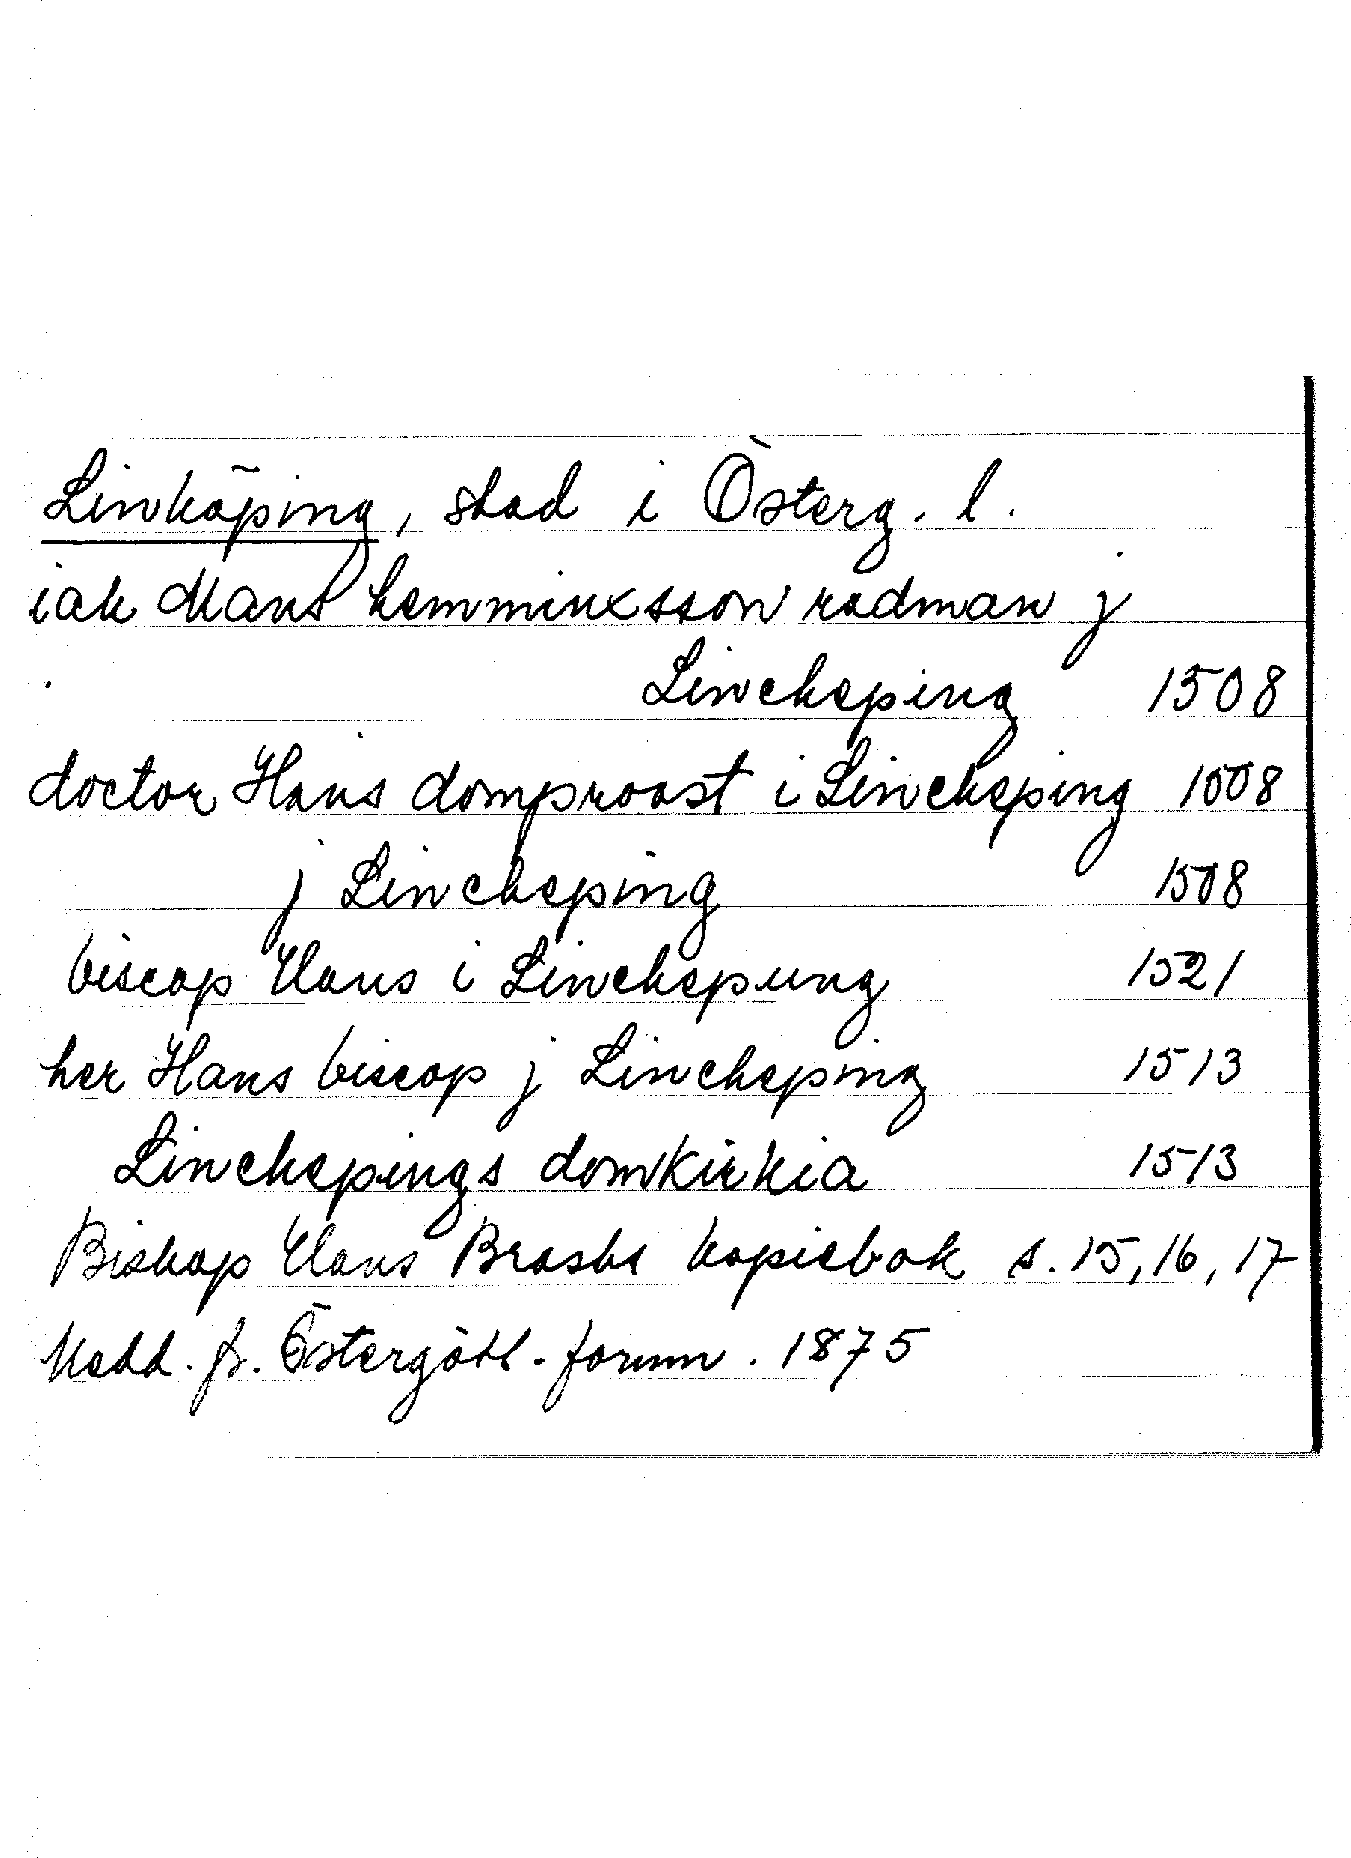 Linköping, stad i Österg. l.
iak Mans hemminxsson radman j
Lincheping 1508
doctor Hans domproost i Lincheping 1508
j Lincheping 1508
biscop Hans i Linchepung 1521
her Hans biscop j Lincheping 1513
Linchepings domkirkia 1513
Biskop Hans Brasks kopiebok s. 15, 16, 17
Medd. fr. Östergötl. fornm. 1875